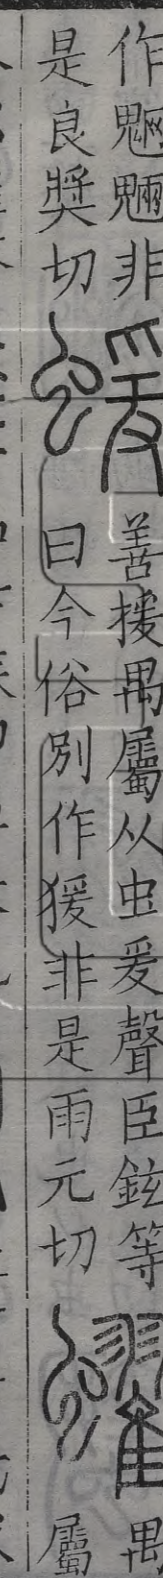 作魍魎非
是良獎切
蝯
善援禺屬从虫爰聲臣鉉等
曰今俗別作猨非是雨元切
蠗
禺
屬